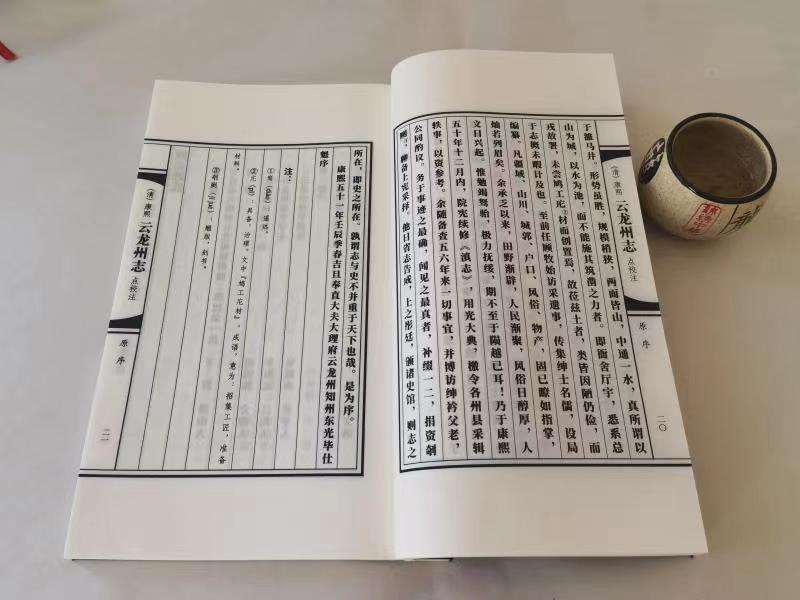 (清)康熙 云龙州志 点校注 原序 二〇
于雒马井。形势虽胜,规模稍狭,两面皆山,中通一水,真所谓以
山为城,以水为池,而不能施其筑凿之力者。即衙舍厅宇,悉系总
戎故署,未尝鸠工庀②材而创置焉,故莅兹土者,类皆因陋仍俭,而
于志概未暇计及也。至前任顾牧始访采遗事,传集绅士名儒,设局
编纂。凡疆域、山川、城郭、户口、风俗、物产,固已瞭如指掌,
灿若列眉矣。余承乏以来,田野渐辟,人民渐聚,风俗日醇厚,人
文日兴起。惟勉竭驽骀,极力抚绥,期不至于陨越已耳!乃于康熙
五十年十二月内,院宪续修《滇志》,用光大典,檄令各州县采辑
轶事,以资参考。余随备查五六年来一切事宜,并博访绅衿父老,
公同酌议。务于事迹之最确,闻见之最真者,补缀一二,捐资剞
聊备上宪采择。他日省志告成,上之彤廷,颁诸史馆,则志之
所在,即史之所在。孰谓志与史不并重于天下也哉。是为序。
康熙五十一年壬辰季春吉旦奉直大夫大理府云龙州知州东光毕仕
魁序
注:
① :遥远。
②庀(pǐ):具备,治理。文中“鸠工庀材”,成语,意为:招集工匠,准备
材料。
③剞劂(jī jué):雕版,刻书。
(清)康熙 云龙州志 点校注 原序 二一